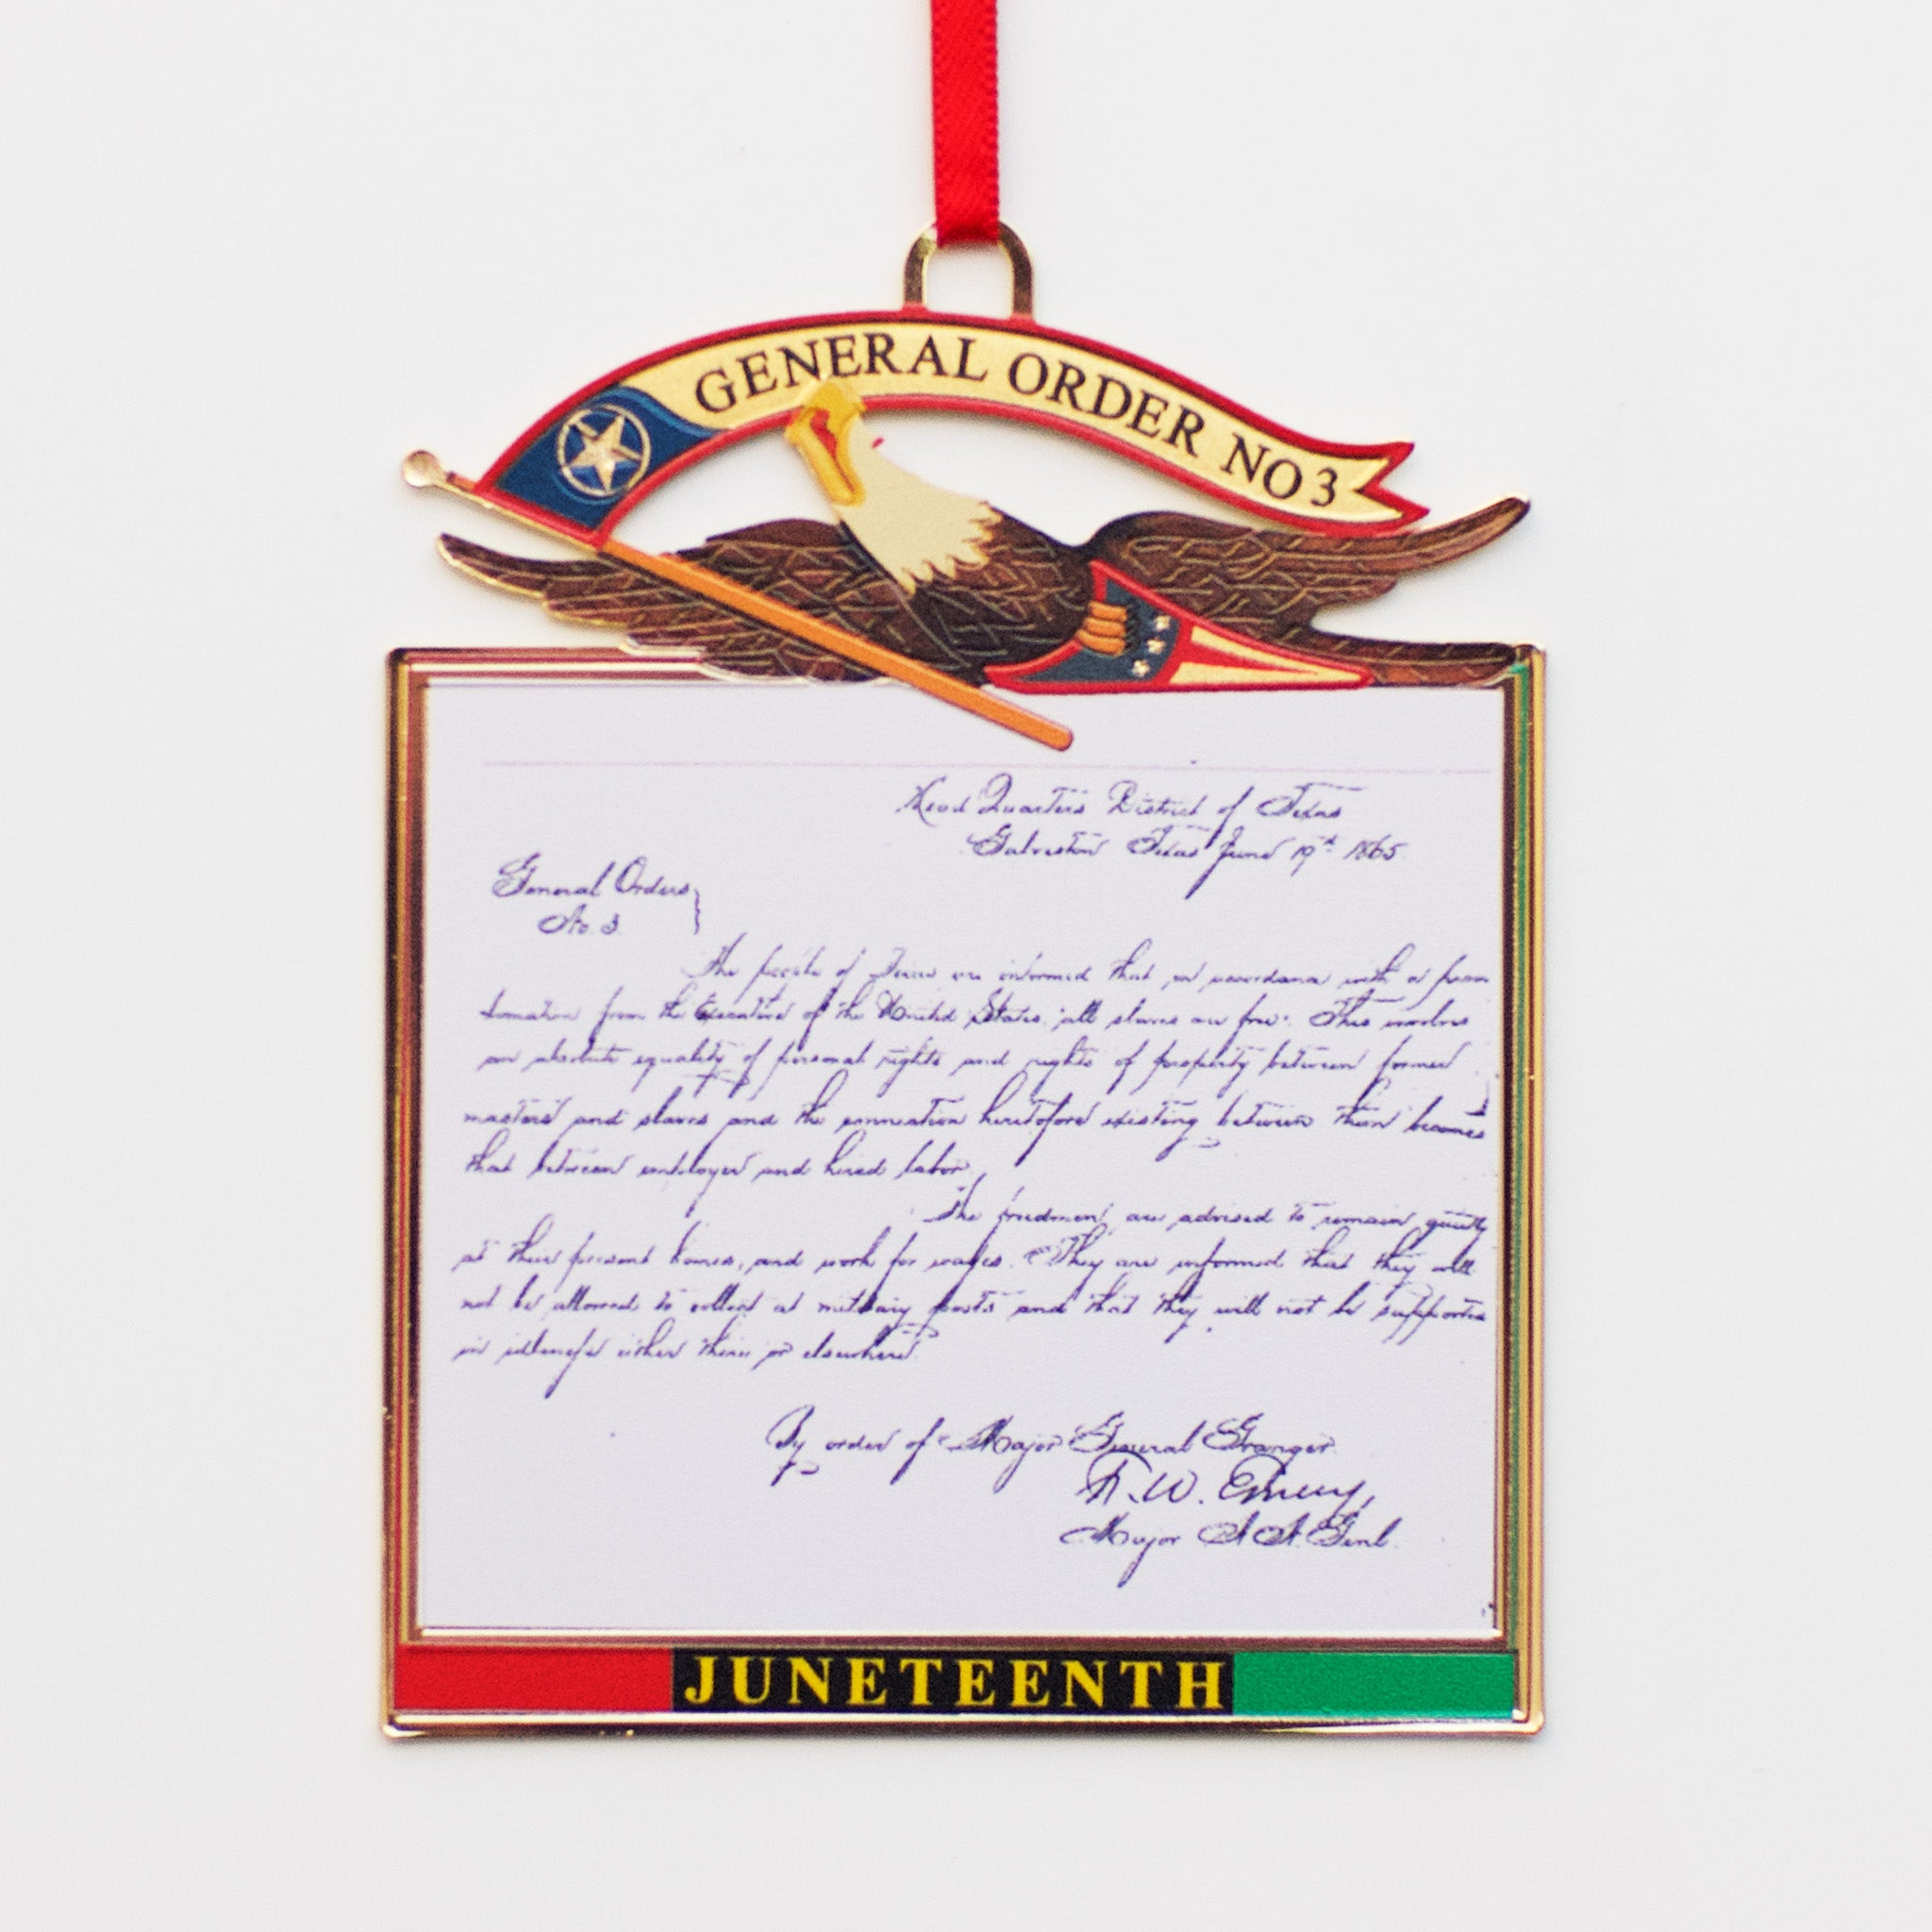 GENERAL ORDER NO 3
Head Quarters District of Texas
Galveston Texas June 19th 1865.
General Orders
No. 3.
The people of Texas are informed that in accordance with a procla-
mation from the Executive of the United States, "all slaves are free". This involves
an absolute equality of personal rights and rights of property between former
masters and slaves and the connection heretofore existing between them becomes
that between employer and hired labor.
The freedmen are advised to remain quietly
at their present homes, and work for wages. They are informed that they will
not be allowed to collect at military posts and that they will not be supported
in idleness either there or elsewhere.
By order of Major General Granger
F. W. Emery,
Major A. A. Genl.
JUNETEENTH